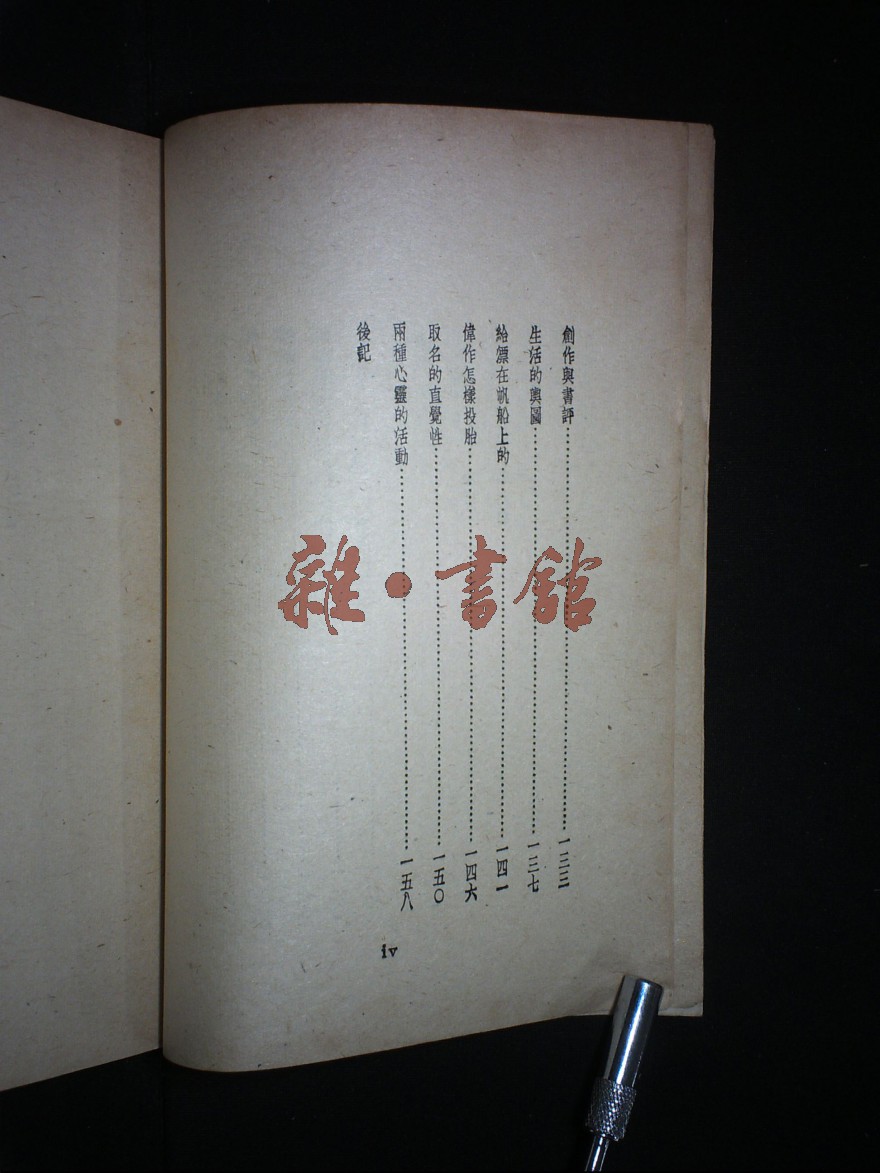 創作與書評……一三三
生活的輿圖……一三七
給漂在帆船上的……一四一
偉作怎樣投胎……一四六
取名的直覺性……一五〇
兩種心靈的活動……一五八
後記
iv
雜·書館